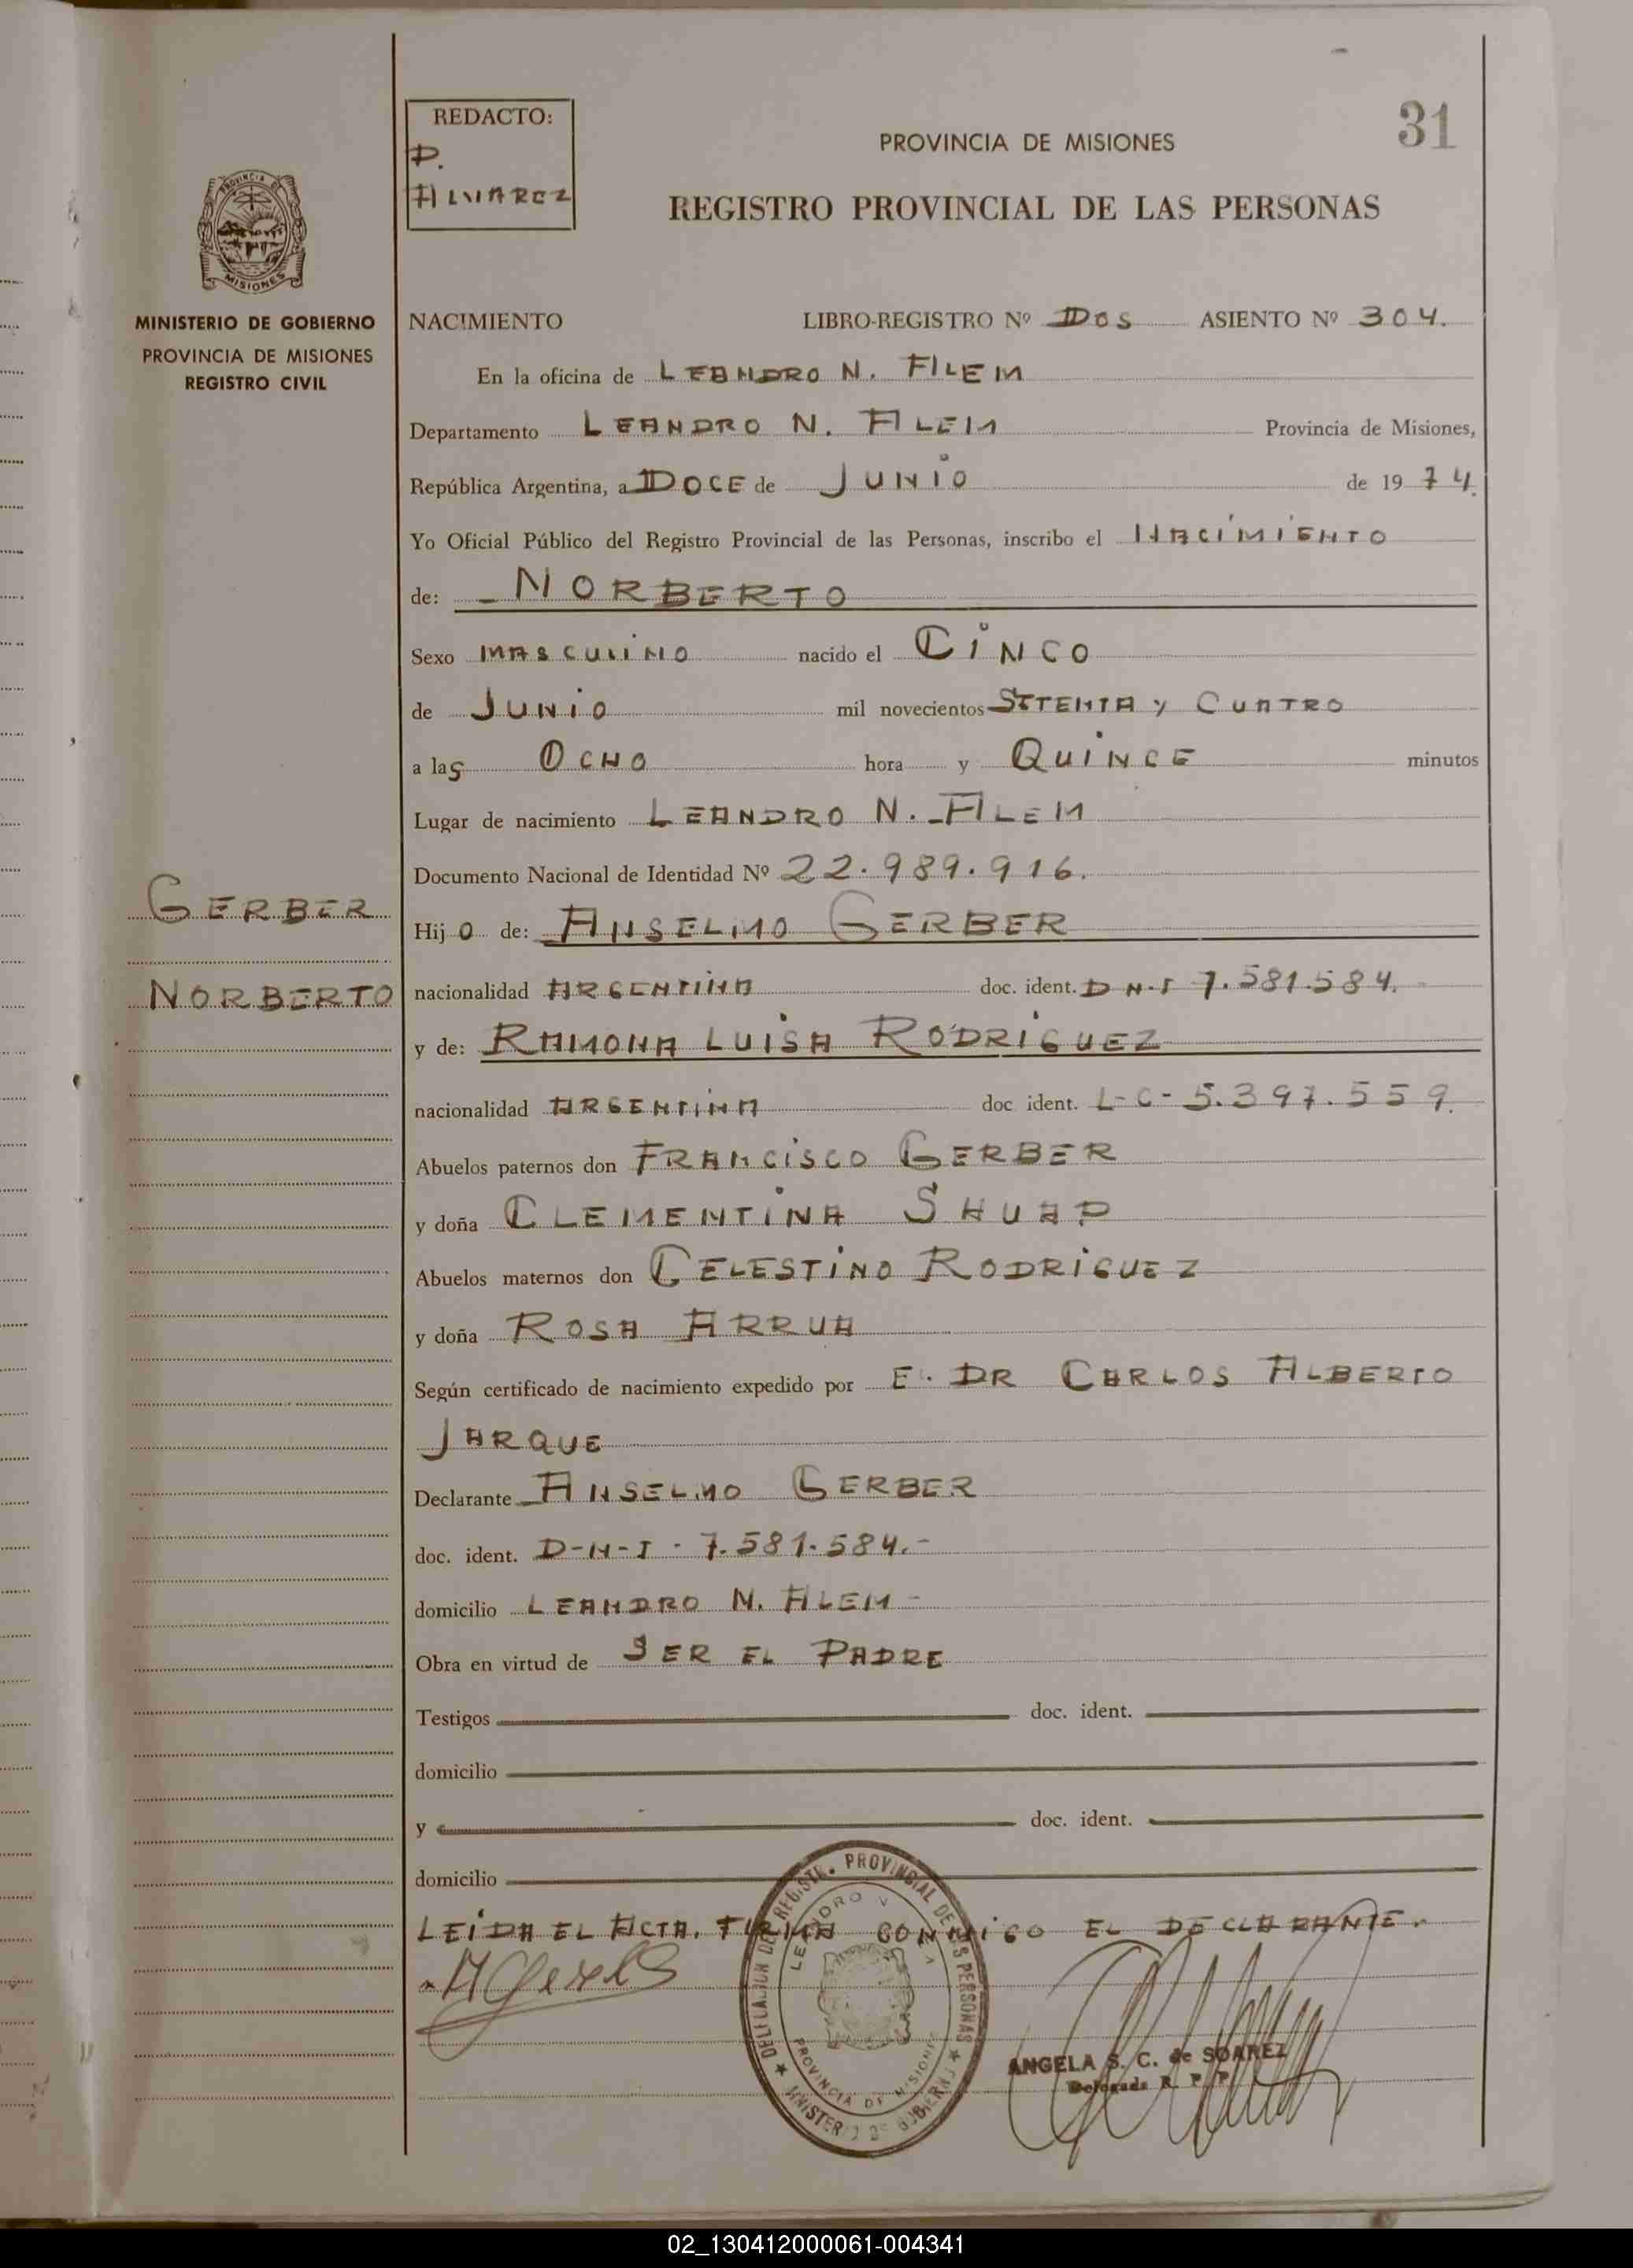 REDACTO:
P.
ALVAREZ
31
PROVINCIA DE MISIONES
REGISTRO PROVINCIAL DE LAS PERSONAS
PROVINCIA DE
MISIONES
MINISTERIO DE GOBIERNO
PROVINCIA DE MISIONES
REGISTRO CIVIL
NACIMIENTO LIBRO-REGISTRO Nº DOS ASIENTO Nº 304.
En la oficina de LEANDRO N. ALEM
Departamento LEANDRO N. ALEM Provincia de Misiones,
República Argentina, a DOCE de JUNIO de 19 74.
Yo Oficial Público del Registro Provincial de las Personas, inscribo el NACIMIENTO
de: NORBERTO
Sexo MASCULINO nacido el CINCO
de JUNIO mil novecientos SETENTA y CUATRO
a las OCHO hora y QUINCE minutos
Lugar de nacimiento LEANDRO N. ALEM
Documento Nacional de Identidad Nº 22.989.916.
GERBER
Hijo de: ANSELMO GERBER
NORBERTO
nacionalidad ARGENTINA doc. ident. D N-I 7.581.584.
y de: RAMONA LUISA RODRIGUEZ
nacionalidad ARGENTINA doc ident. L-C- 5.397.559.
Abuelos paternos don FRANCISCO GERBER
y doña CLEMENTINA SHUAP
Abuelos maternos don CELESTINO RODRIGUEZ
y doña ROSA ARRUA
Según certificado de nacimiento expedido por E. DR CARLOS ALBERTO
JARQUE
Declarante ANSELMO GERBER
doc. ident. D-N-I - 7.581.584.-
domicilio LEANDRO N. ALEM -
Obra en virtud de SER EL PADRE
Testigos doc. ident.
domicilio
y doc. ident.
domicilio
LEIDA EL ACTA. FIRMA CONMIGO EL DECLARANTE.
DELEGACION DE REGISTR. PROVINCIAL DE LAS PERSONAS
MINISTERIO DE GOBIERNO
PROVINCIA DE MISIONES
ANGELA S. C. de SOAREZ
Delegada R. P. P.
02_130412000061-004341